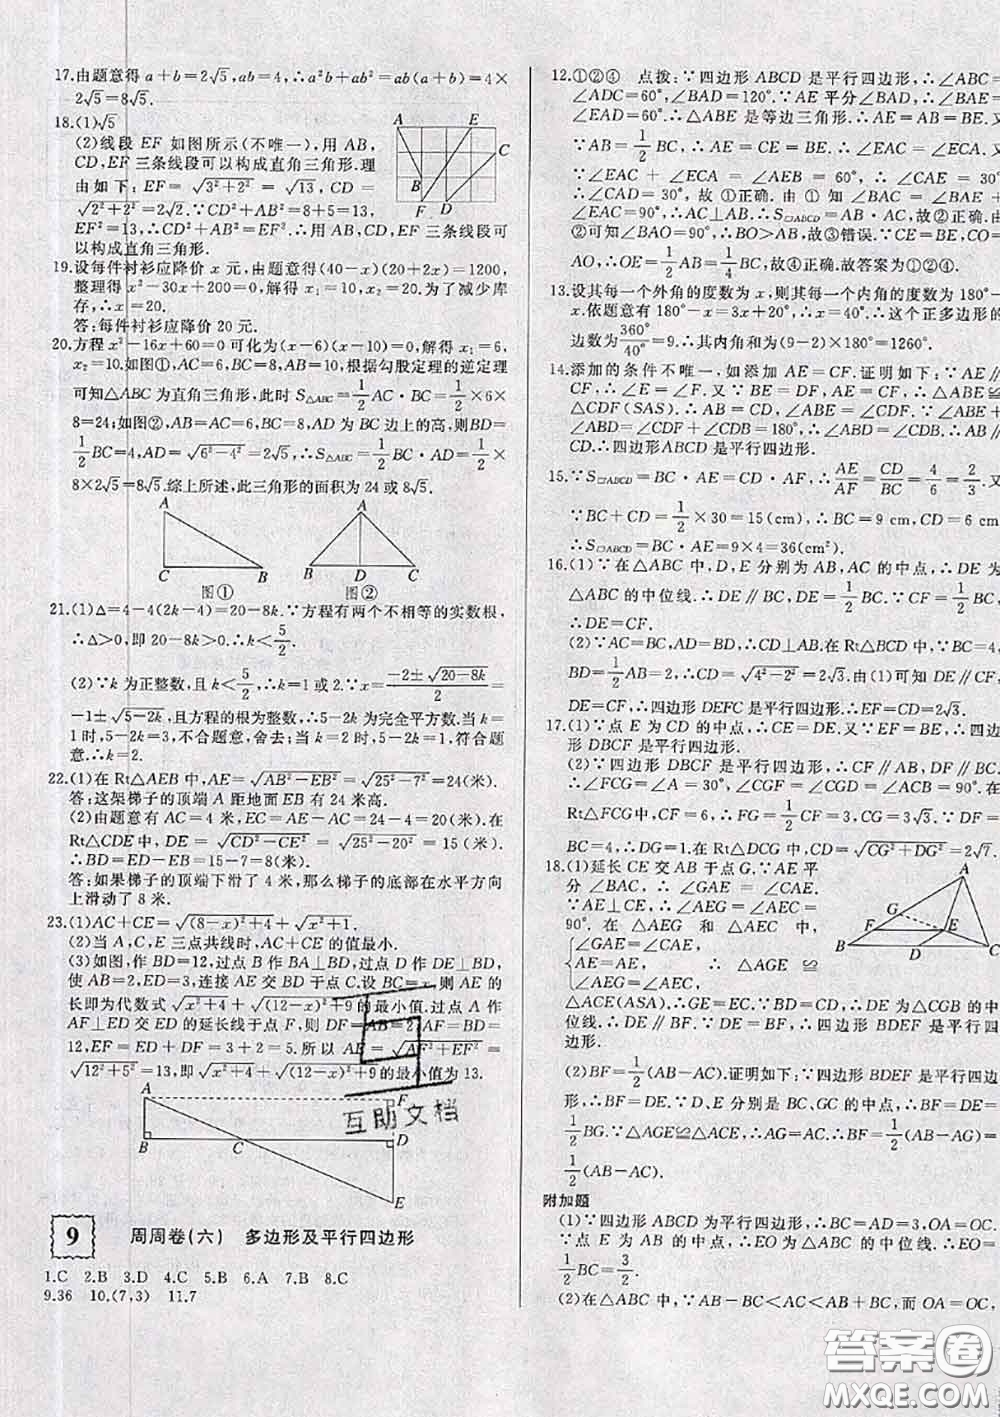 17.由题意得 a+b=2√5,ab=4,∴a²b+ab²=ab(a+b)=4×
2√5=8√5.
18.(1)√5
(2)线段 EF 如图所示(不唯一),用 AB,
CD,EF 三条线段可以构成直角三角形.理
由如下:EF=√(3²+2²)=√13,CD=
√(2²+2²)=2√2.∵CD²+AB²=8+5=13,
EF²=13,∴CD²+AB²=EF².∴用 AB,CD,EF 三条线段可
以构成直角三角形.
A E
C
B
F D
19.设每件衬衫应降价 x 元,由题意得(40-x)(20+2x)=1200,
整理得 x²-30x+200=0,解得 x₁=10,x₂=20.为了减少库
存,∴x=20.
答:每件衬衫应降价 20 元.
20.方程 x²-16x+60=0 可化为(x-6)(x-10)=0,解得 x₁=6,
x₂=10.如图①,AC=6,BC=8,AB=10,根据勾股定理的逆定理
可知△ABC 为直角三角形,此时 S△ABC=1/2 AC·BC=1/2×6×
8=24;如图②,AB=AC=6,BC=8,AD 为 BC 边上的高,则BD=
1/2 BC=4,AD=√(6²-4²)=2√5,∴S△ABC=1/2 BC·AD=1/2×
8×2√5=8√5.综上所述,此三角形的面积为 24 或 8√5.
A A
C B B D C
图① 图②
21.(1)△=4-4(2k-4)=20-8k.∵方程有两个不相等的实数根,
∴△>0,即 20-8k>0,∴k<5/2.
(2)∵k 为正整数,且 k<5/2,∴k=1 或 2.∵x=(-2±√(20-8k))/2=
-1±√(5-2k),且方程的根为整数,∴5-2k 为完全平方数.当 k=
1时,5-2k=3,不合题意,舍去;当 k=2 时,5-2k=1,符合题
意.∴k=2.
22.(1)在 Rt△AEB 中,AE=√(AB²-EB²)=√(25²-7²)=24(米).
答:这架梯子的顶端 A 距地面 EB 有 24 米高.
(2)由题意有 AC=4 米,EC=AE-AC=24-4=20(米).在
Rt△CDE 中,DE=√(CD²-CE²)=√(25²-20²)=15(米).
∴BD=ED-EB=15-7=8(米).
答:如果梯子的顶端下滑了 4 米,那么梯子的底部在水平方向
上滑动了 8 米.
23.(1)AC+CE=√((8-x)²+4)+√(x²+1).
(2)当 A,C,E 三点共线时,AC+CE 的值最小.
(3)如图,作 BD=12,过点 B 作 BA⊥BD,过点 D 作 DE⊥BD,
使 AB=2,ED=3,连接 AE 交 BD 于点 C.设 BC=x,则 AE 的
长即为代数式 √(x²+4)+√((12-x)²+9) 的最小值.过点 A 作
AF⊥ED 交 ED 的延长线于点 F,则 DF=AB=2,AF=BD=
12,EF=ED+DF=3+2=5.所以 AE=√(AF²+EF²)=
√(12²+5²)=13,即 √(x²+4)+√((12-x)²+9) 的最小值为 13.
A F
B C D
E
互助文档
9 周周卷(六) 多边形及平行四边形
1.C 2.B 3.D 4.C 5.B 6.A 7.B 8.C
9.36 10.(7,3) 11.7
12.①②④ 点拨:∵四边形 ABCD 是平行四边形,∴∠ABC=
∠ADC=60°,∠BAD=120°.∵AE 平分∠BAD,∴∠BAE=
∠EAD=60°.∴△ABE 是等边三角形.∴AE=AB=BE.
∵AB=1/2 BC,∴AE=CE=BE.∴∠EAC=∠ECA.
∵∠EAC+∠ECA=∠AEB=60°,∴∠CAE=30°
∴∠CAD=30°,故 ①正确.由 ① 知 ∠BAC=∠BAE+
∠EAC=90°,∴AC⊥AB.∴S□ABCD=AB·AC,故②正确.由
②可知∠BAO=90°,∴BO>AB,故③错误.∵CE=BE,CO=
AO,∴OE=1/2 AB=1/4 BC,故④正确.故答案为①②④.
13.设其每一个外角的度数为 x,则其每一个内角的度数为 180°-
x.依题意有 180°-x=3x+20°,∴x=40°,∴这个正多边形的
边数为 360°/40°=9.∴其内角和为(9-2)×180°=1260°.
14.添加的条件不唯一,如添加 AE=CF.证明如下:∵AE∥
CF,∴∠E=∠F.又∵BE=DF,AE=CF,∴△ABE≌
△CDF(SAS).∴AB=CD,∠ABE=∠CDF.∵∠ABE+
∠ABD=∠CDF+∠CDB=180°,∴∠ABD=∠CDB.∴AB∥
CD.∴四边形ABCD 是平行四边形.
15.∵S□ABCD=BC·AE=CD·AF,∴AE/AF=CD/BC=4/6=2/3.又
∵BC+CD=1/2×30=15(cm),∴BC=9 cm,CD=6 cm
∴S□ABCD=BC·AE=9×4=36(cm²).
16.(1)∵在△ABC 中,D,E 分别为 AB,AC 的中点,∴DE 为
△ABC 的中位线.∴DE=1/2 BC.∵CF=1/2 BC,
∴DE=CF.
(2)∵AC=BC,AD=BD,∴CD⊥AB.在 Rt△BCD 中,BC=4,
BD=1/2 AB=2,∴CD=√(4²-2²)=2√3.由(1)可知 DE∥CF,
DE=CF,∴四边形 DEFC 是平行四边形.∴EF=CD=2√3.
17.(1)∵点 E 为 CD 的中点,∴CE=DE.又∵EF=BE,∴四边
形 DBCF 是平行四边形.
(2)∵四边形 DBCF 是平行四边形,∴CF∥AB,DF∥BC.
∴∠FCG=∠A=30°,∠CGF=∠CGD=∠ACB=90°.在
Rt△FCG 中,CF=6,∴FG=1/2 CF=3,CG=3√3.∵DF=
BC=4,∴DG=1.在 Rt△DCG 中,CD=√(CG²+DG²)=2√7.
18.(1)延长 CE 交 AB 于点 G.∵AE 平
分 ∠BAC,∴∠GAE=∠CAE.
∵AE⊥CE,∴∠AEG=∠AEC=
90°.在 △AEG 和 △AEC 中,
∠GAE=∠CAE,
AE=AE,
∠AEG=∠AEC,
∴△AGE≌
△ACE(ASA).∴GE=EC.又∵BD=CD,∴DE 为△CGB 的中
位线.∴DE∥BF.∵EF∥BC,∴四边形 BDEF 是平行四边形.
A
G
F E
B D C
(2)BF=1/2(AB-AC).证明如下:∵四边形 BDEF 是平行四边
形,∴BF=DE.∵D、E 分别是 BC、GC 的中点,∴BF=DE=
1/2 BG.∵△AGE≌△ACE,∴AG=AC.∴BF=1/2(AB-AG)=
1/2(AB-AC).
附加题
(1)∵四边形 ABCD 为平行四边形,BC=AD=3,OA=OC.
∵点 E 为 AB 的中点,∴EO 为△ABC 的中位线.∴EO=
1/2 BC=3/2.
(2)在△ABC 中,∵AB-BC<AC<AB+BC,而 OA=OC,
答案圈
MXQE.COM